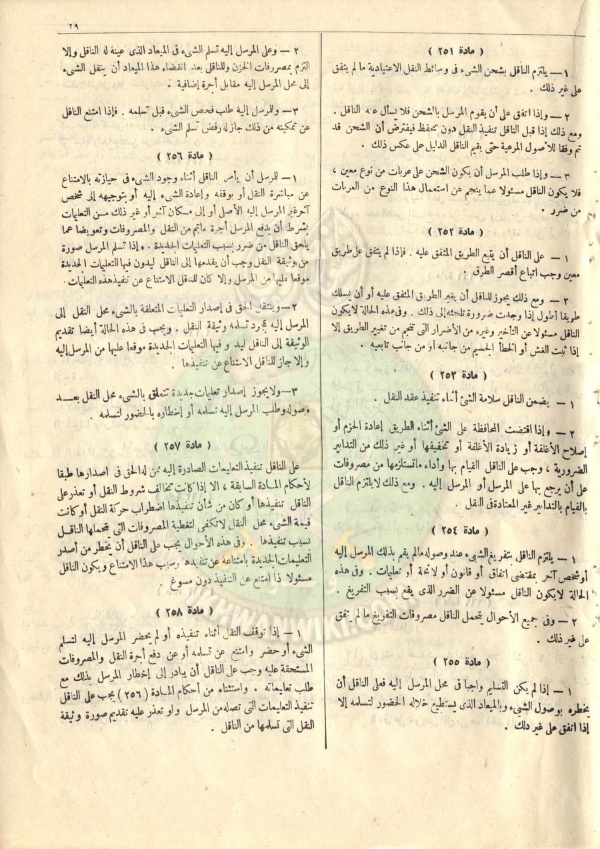 ٢٩
( مادة ٢٥١ )
١ — يلتزم الناقل بشحن الشىء فى وسائط النقل الاعتيادية ما لم يتفق
على غير ذلك .
٢ — وإذا اتفق على أن يقوم المرسل بالشحن فلا يسأل عنه الناقل .
ومع ذلك إذا قبل الناقل تنفيذ النقل دون تحفظ فيفترض أن الشحن قد
تم وفقا للأصول المرعية حتى يقيم الناقل الدليل على عكس ذلك .
٣ — وإذا طلب المرسل أن يكون الشحن على عربات من نوع معين ،
فلا يكون الناقل مسئولا عما ينجم عن استعمال هذا النوع من العربات
من ضرر .
( مادة ٢٥٢ )
١ — على الناقل أن يتبع الطريق المتفق عليه . فإذا لم يتفق على طريق
معين وجب اتباع أقصر الطرق .
٢ — ومع ذلك يجوز للناقل أن يغير الطريق المتفق عليه أو أن يسلك
طريقا أطول إذا وجدت ضرورة تلجئه إلى ذلك . وفى هذه الحالة لا يكون
الناقل مسئولا عن التأخير وغيره من الأضرار التى تنجم من تغيير الطريق إلا
إذا ثبت الغش أو الخطأ الجسيم من جانبه أو من جانب تابعيه .
( مادة ٢٥٣ )
١ — يضمن الناقل سلامة الشئ أثناء تنفيذ عقد النقل .
٢ — وإذا اقتضت المحافظة على الشئ أثناء الطريق إعادة الحزم أو
إصلاح الأغلفة أو زيادة الأغلفة أو تخفيفها أو غير ذلك من التدابير
الضرورية ، وجب على الناقل القيام بها وأداء ماتستلزمها من مصروفات
على أن يرجع بها على المرسل أو المرسل إليه . ومع ذلك لا يلتزم الناقل
بالقيام بالتدابير غير المعتادة فى النقل .
( مادة ٢٥٤ )
١ — يلتزم الناقل بتفريغ الشىء عند وصوله مالم يقم بذلك المرسل إليه
أو شخص آخر بمقتضى اتفاق أو قانون أو لائحة أو تعليمات . وفى هذه
الحالة لا يكون الناقل مسئولا عن الضرر الذى يقع بسبب التفريغ .
٢ — وفى جميع الأحوال يتحمل الناقل مصروفات التفريغ ما لم يتفق
على غير ذلك .
( مادة ٢٥٥ )
١ — إذا لم يكن التسليم واجبا فى محل المرسل إليه فعلى الناقل أن
يخطره بوصول الشىء وبالميعاد الذى يستطيع خلاله الحضور لتسلمه إلا
إذا اتفق على غير ذلك .
٢ — وعلى المرسل إليه تسلم الشىء فى الميعاد الذى عينه له الناقل وإلا
التزم بمصروفات الخزن وللناقل بعد انقضاء هذا الميعاد أن ينقل الشىء
إلى محل المرسل إليه مقابل أجرة إضافية .
٣ — وللمرسل إليه طلب فحص الشىء قبل تسلمه . فإذا امتنع الناقل
عن تمكينه من ذلك جاز له رفض تسلم الشىء .
( مادة ٢٥٦ )
١ — للمرسل أن يأمر الناقل أثناء وجود الشىء فى حيازته بالامتناع
عن مباشرة النقل أو بوقفه وإعادة الشىء إليه أو بتوجيهه إلى شخص
آخر غير المرسل إليه الأصلى أو إلى مكان آخر أو غير ذلك من التعليمات
بشرط أن يدفع المرسل أجرة ماتم من النقل والمصروفات وتعويضا عما
يلحق الناقل من ضرر بسبب التعليمات الجديدة . وإذا تسلم المرسل صورة
من وثيقة النقل وجب أن يقدمها إلى الناقل ليدون فيها التعليمات الجديدة
موقعا عليها من المرسل وإلا كان للناقل الامتناع عن تنفيذ هذه التعليمات
٢ — وينتقل الحق فى إصدار التعليمات المتعلقة بالشىء محل النقل إلى
المرسل إليه بمجرد تسلمه وثيقة النقل . ويجب فى هذه الحالة أيضا تقديم
الوثيقة إلى الناقل ليدون فيها التعليمات الجديدة موقعا عليها من المرسل إليه
وإلا جاز للناقل الامتناع عن تنفيذها .
٣ — ولا يجوز إصدار تعليمات جديدة تتعلق بالشىء محل النقل بعد
وصوله وطلب المرسل إليه تسلمه أو إخطاره بالحضور لتسلمه .
( مادة ٢٥٧ )
على الناقل تنفيذ التعليمات الصادرة إليه ممن له الحق فى إصدارها طبقا
لأحكام المادة السابقة ، إلا إذا كانت تخالف شروط النقل أو تعذر على
الناقل تنفيذها أو كان من شأن تنفيذها اضطراب حركة النقل أو كانت
قيمة الشىء محل النقل لا تكفى لتغطية المصروفات التى يتحملها الناقل
بسبب تنفيذها . وفى هذه الأحوال يجب على الناقل أن يخطر من أصدر
التعليمات الجديدة بامتناعه عن تنفيذها وسبب هذا الامتناع ويكون الناقل
مسئولا إذا امتنع عن التنفيذ دون مسوغ .
( مادة ٢٥٨ )
١ — إذا توقف النقل أثناء تنفيذه أو لم يحضر المرسل إليه لتسلم
الشىء أو حضر وامتنع عن تسلمه أو عن دفع أجرة النقل والمصروفات
المستحقة عليه وجب على الناقل أن يبادر إلى إخطار المرسل بذلك مع
طلب تعليماته . واستثناء من أحكام المادة (٢٥٦) يجب على الناقل
تنفيذ التعليمات التى تصله من المرسل ولو تعذر عليه تقديم صورة وثيقة
النقل التى تسلمها من الناقل .